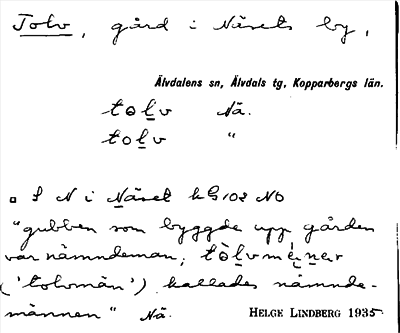 Tolv, gård i Näsets by,
Älvdalens sn, Älvdals tg, Kopparbergs län.
tolv Nä.
tolv "
S N i Näset kG 102 NO
"gubben som byggde upp gården
var nämndeman; tòlvmẹner
('tolvmän') kallades nämnde-
männen" Nä.
HELGE LINDBERG 1935.